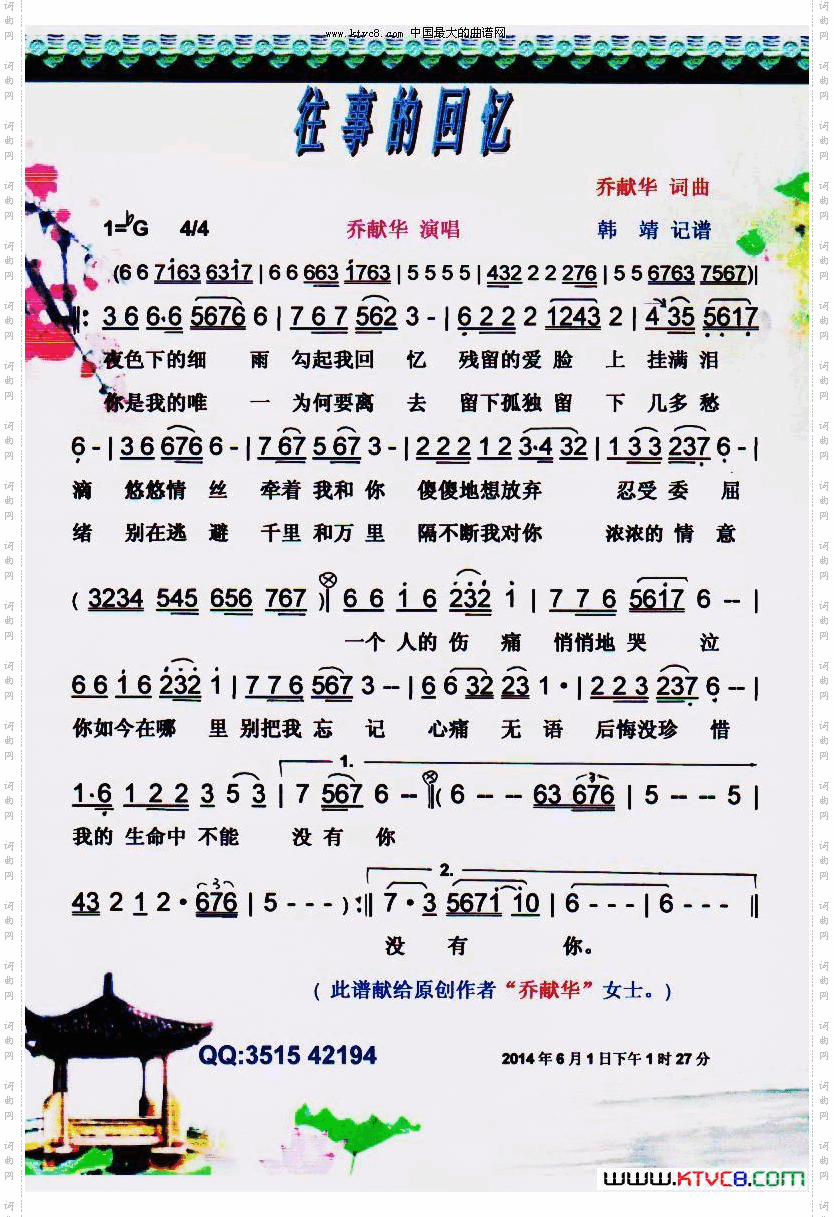 www.ktvc8.com 中国最大的曲谱网
往事的回忆
乔献华 词曲
1=♭G 4/4 乔献华 演唱 韩 靖 记谱
(6 6 7163 6317 | 6 6 663 1763 | 5 5 5 5 | 432 2 2 276 | 5 5 6763 7567)|
‖: 3 6 6·6 5676 6 | 7 6 7 562 3 - | 6 2 2 2 1243 2 | 4 35 5617
夜色下的细 雨 勾起我回 忆 残留的爱 脸 上 挂满 泪
你是我的唯 一 为何要离 去 留下孤独 留 下 几多 愁
6 - | 3 6 676 6 - | 7 67 5 67 3 - | 2 2 2 1 2 3·4 32 | 1 3 3 237 6 - |
滴 悠悠情 丝 牵着 我和 你 傻傻地想放弃 忍受 委 屈
绪 别在逃 避 千里 和万 里 隔不断我对你 浓浓的 情 意
( 3234 545 656 767 )‖ 6 6 1 6 232 1 | 7 7 6 5617 6 -- |
一个 人的 伤 痛 悄悄地 哭 泣
6 6 1 6 232 1 | 7 7 6 567 3 -- | 6 6 32 23 1 · | 2 2 3 237 6 -- |
你如今在哪 里 别把我 忘 记 心痛 无 语 后悔没珍 惜
1.
1·6 1 2 2 3 5 3 | 7 567 6 -- ‖( 6 -- -- 63 676 | 5 -- -- 5 |
我的 生命中 不能 没 有 你
2.
43 2 1 2 · 676 | 5 - - - ) :‖ 7 · 3 5671 10 | 6 - - - | 6 - - - ‖
没 有 你。
( 此谱献给原创作者“乔献华”女士。)
QQ:3515 42194 2014 年 6 月 1 日下午 1 时 27 分
WWW.KTVC8.COM